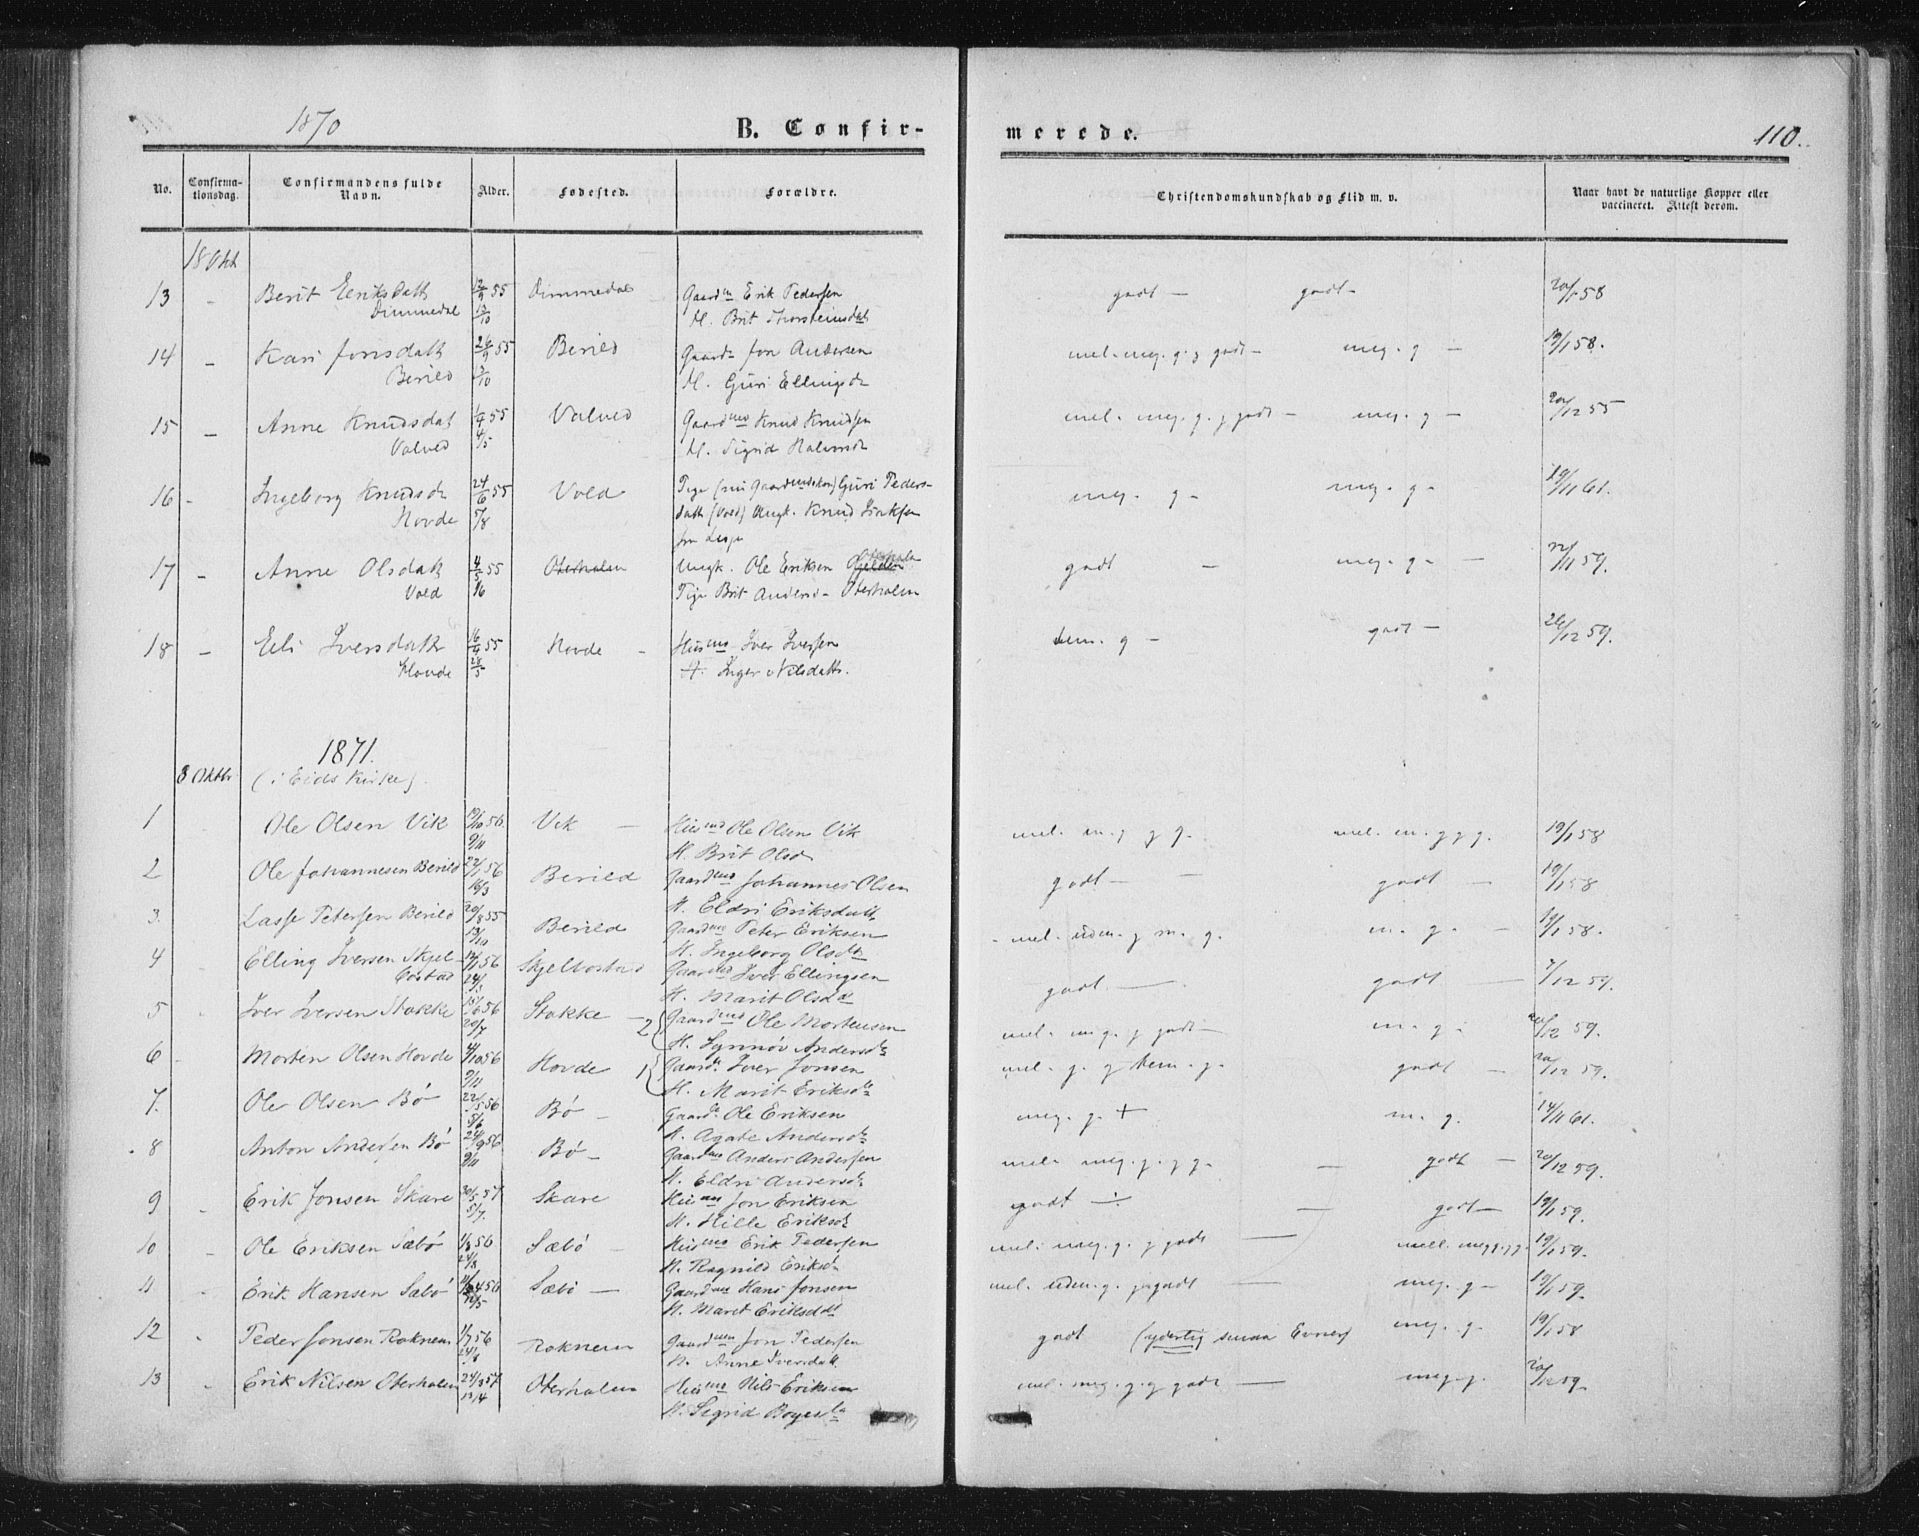 1870 B. Confir- merede. 110.
No. Confirma-tionsdag. Confirmandens fulde Navn. Alder. Fødested. Forældre. Christendomskundskab og Flid m. v. Naar havt de naturlige Kopper eller vaccineret. Attest derom.
13 - Berit Eriksdatt 12/9 55 Dimmedal Gaardm Erik Pedersen godt - godt - 20/1 58
Dimmedal 13/10 H. Brit Thorsteinsdat
14 - Kari Jonsdatt 24/9 55 Berild Gaard Jon Andersen mel. meg. g. g godt - meg. g - 19/1 58.
Berild H. Guri Ellingsd
15 - Anne Knudsdat 55 Valved Gaardmd Knud Knudsen mel. meg. g. g godt - meg. g - 20/12 55
Valved 4/5 H. Sigrid
16 - Ingeborg Knudsd 24/6 55 Vold Pige (nu Gaardmdskon) Guri Peders- meg. g - meg. g - 19/11 61.
Hovde 5/8 datt (Vold) Ungk. Knud
17 - Anne Olsdatt 4/5 55 Oterholm Ungk. Ole Eriksen godt - meg. g - - 59.
Vold Pige Brit Anders - Oterholm
18 - Eli Iversdatt 16/4 55 Hovde - Husmd Iver Iversen tem. g - godt - 12 59.
Hovde 28/5 H. Inger Nilsdatt.
1871.
8 Oktbr. (i Eids Kirke).
1 Ole Olsen Vik 19/10 56. Vik - Husmd Ole Olsen Vik mel. m. g g g. mel. m. g g g. 19/1 58
9/11 H. Brit Olsd
2 Ole Johannesen Berild 56 Berild Gaardmd Johannes Olsen godt - - godt - 19/1 58
16/3 H. Eldri Eriksdatt
3. Lasse Petersen Berild 20/8 55 Berild Gaardmd Peter Eriksen - mel. udm. g m. g. m. g. - 19/1 58.
13/10 H. Ingeborg Olsdt
4 Elling Iversen Skjel- 56 Skjelbostad Gaardmd Iver Ellingsen godt - godt - 7/12 59.
bostad 24/3 H. Marit Olsdd
5 Iver Iversen Stokke 15/6 56 Stokke - 2 Gaardmd Ole Mortensen mel. m. g. g godt - m. g. 20/12 59.
20/7 H. Synnøv Andersdt
6 Morten Olsen Hovde 4/10 56 Hovde 1 Gaard Iver Jonsen mel. g. g tem. g. godt - 20/12 59.
9/11 H. Marit Eriksd
7. Ole Olsen Bø 22/5 56 Bø - Gaard Ole Eriksen meg. g. + m. g. 14/11 61.
5/6 H. Agate Andersdt
8 Anton Andersen Bø 24/9 56 Bø - Gaardmd Anders Andersen mel. meg. g. g g. - godt - 20/12 59.
9/11 H. Eldri Andersdt
9 Erik Jonsen Skare 30/5 57. Skare Husmd Jon Eriksen godt ÷ - godt - 19/1 59.
5/7. H. Hille Eriksdt
10 Ole Eriksen Sæbø 1/3 56 Sæbø - Husmd Erik Pedersen mel. meg. g. g godt - mell. meg g. g. 19/1 59.
24/3 H. Ragnild Eriksd
11 Erik Hansen Sæbø 56 Sæbø - Gaardmd Hans Jonsen mel. udm. g. g godt - meg. g - 19/1 59.
H. Maret Eriksddt
12 Peder Jonsen Roknem 1/7 56 Roknem Gaardmd Jon Pedersen godt (yderlig smaa Evner) meg. g. 19/1 58
H. Anne Iversdatt
13 Erik Nilsen Oterholm 24/3 57. Oterholm Husmd Nils Eriksen mel. meg. g. g godt - meg. g. 20/12 59.
13/4 H. Sigrid